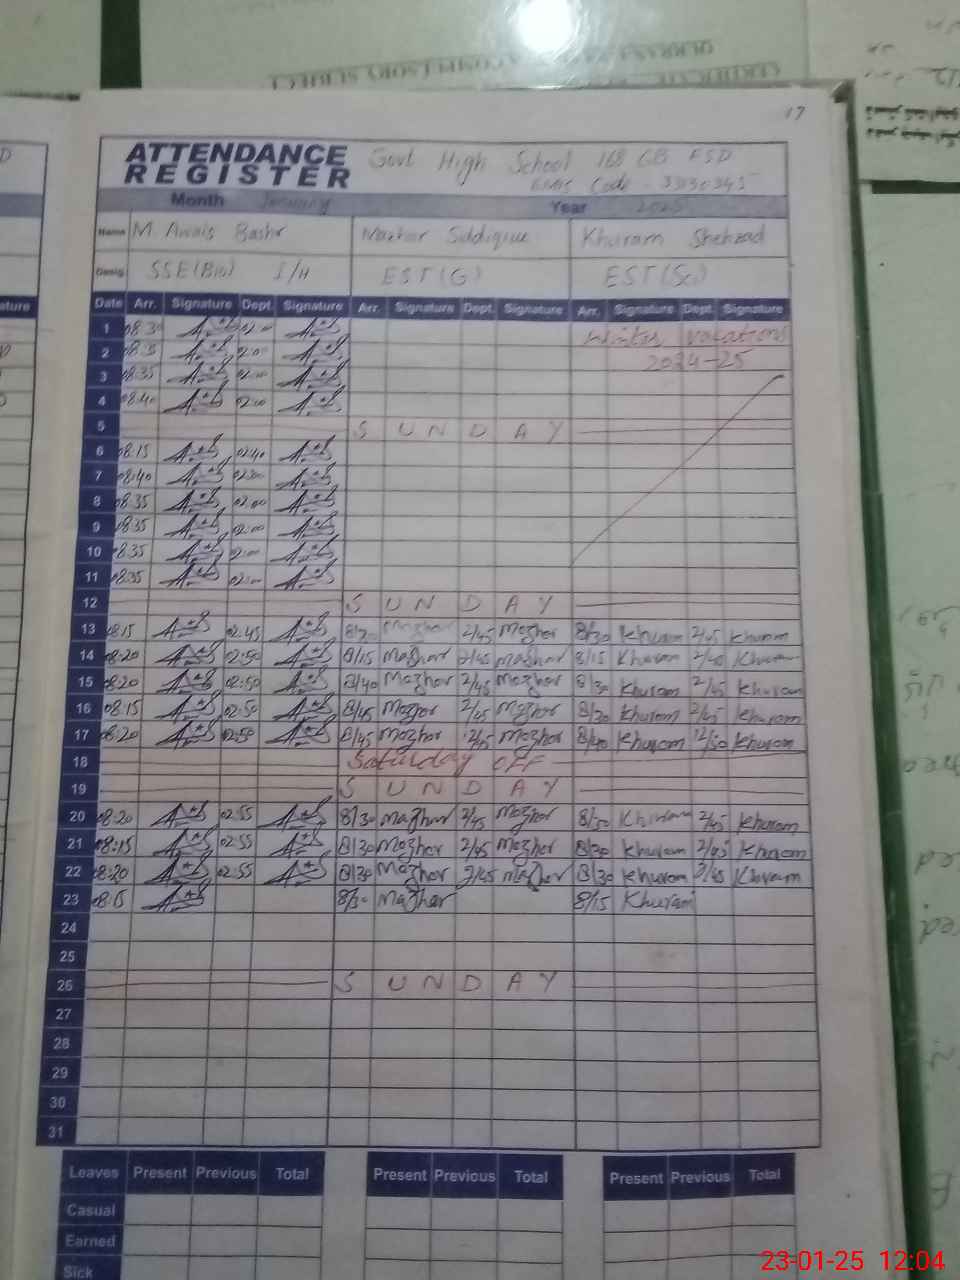 17
ATTENDANCE REGISTER Govt High School 168 GB FSD
EMIS Code - 33130345
Month January Year 2025
Name M. Awais Bashir Mazhar Siddique Khuram Shehzad
Desig. SSE(Bio) I/H EST(G) EST(Sci)
Date Arr. Signature Dept. Signature Arr. Signature Dept. Signature Arr. Signature Dept. Signature
1 08:30 02:00 Winter vacations
2 02:00 2024-25
3 08:35 02:00
4 08:40 02:00
5 SUNDAY
6 08:15 02:40
7 08:40
8 08:35 02:00
9 08:35 02:00
10 08:35 02:00
11 08:35 02:00
12 SUNDAY
13 08:15 02:45 Mazhar 2/45 Mazhar 8/30 Khuram 2/45 Khuram
14 08:20 02:50 8/15 Mazhar 2/45 Mazhar 8/15 Khuram 2/45 Khuram
15 08:20 02:50 8/40 Mazhar 2/45 Mazhar 8/30 Khuram 2/45 Khuram
16 08:15 02:50 8/45 Mazhar 2/45 Mazhar 8/30 Khuram 2/45 Khuram
17 08:20 02:50 8/45 Mazhar 12/45 Mazhar 8/40 Khuram 12/50 Khuram
18 Saturday OFF
19 SUNDAY
20 08:20 02:55 8/30 Mazhar 2/45 Mazhar Khuram 2/45 Khuram
21 08:15 02:55 8/30 Mazhar 2/45 Mazhar 8/30 Khuram 2/45 Khuram
22 08:20 02:55 8/30 Mazhar 2/45 Mazhar 8/30 Khuram 2/45 Khuram
23 08:15 8/30 Mazhar 8/15 Khuram
24
25
26 SUNDAY
27
28
29
30
31
Leaves Present Previous Total Present Previous Total Present Previous Total
Casual
Earned
Sick
23-01-25 12:04